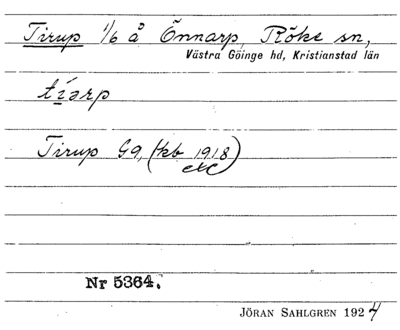 Tirup 1/6 å Önnarp, Röke sn,
Västra Göinge hd, Kristianstad län
tiarp
Tirup G9, (kb 1918)
etc
Nr 5364.
JÖRAN SAHLGREN 1924